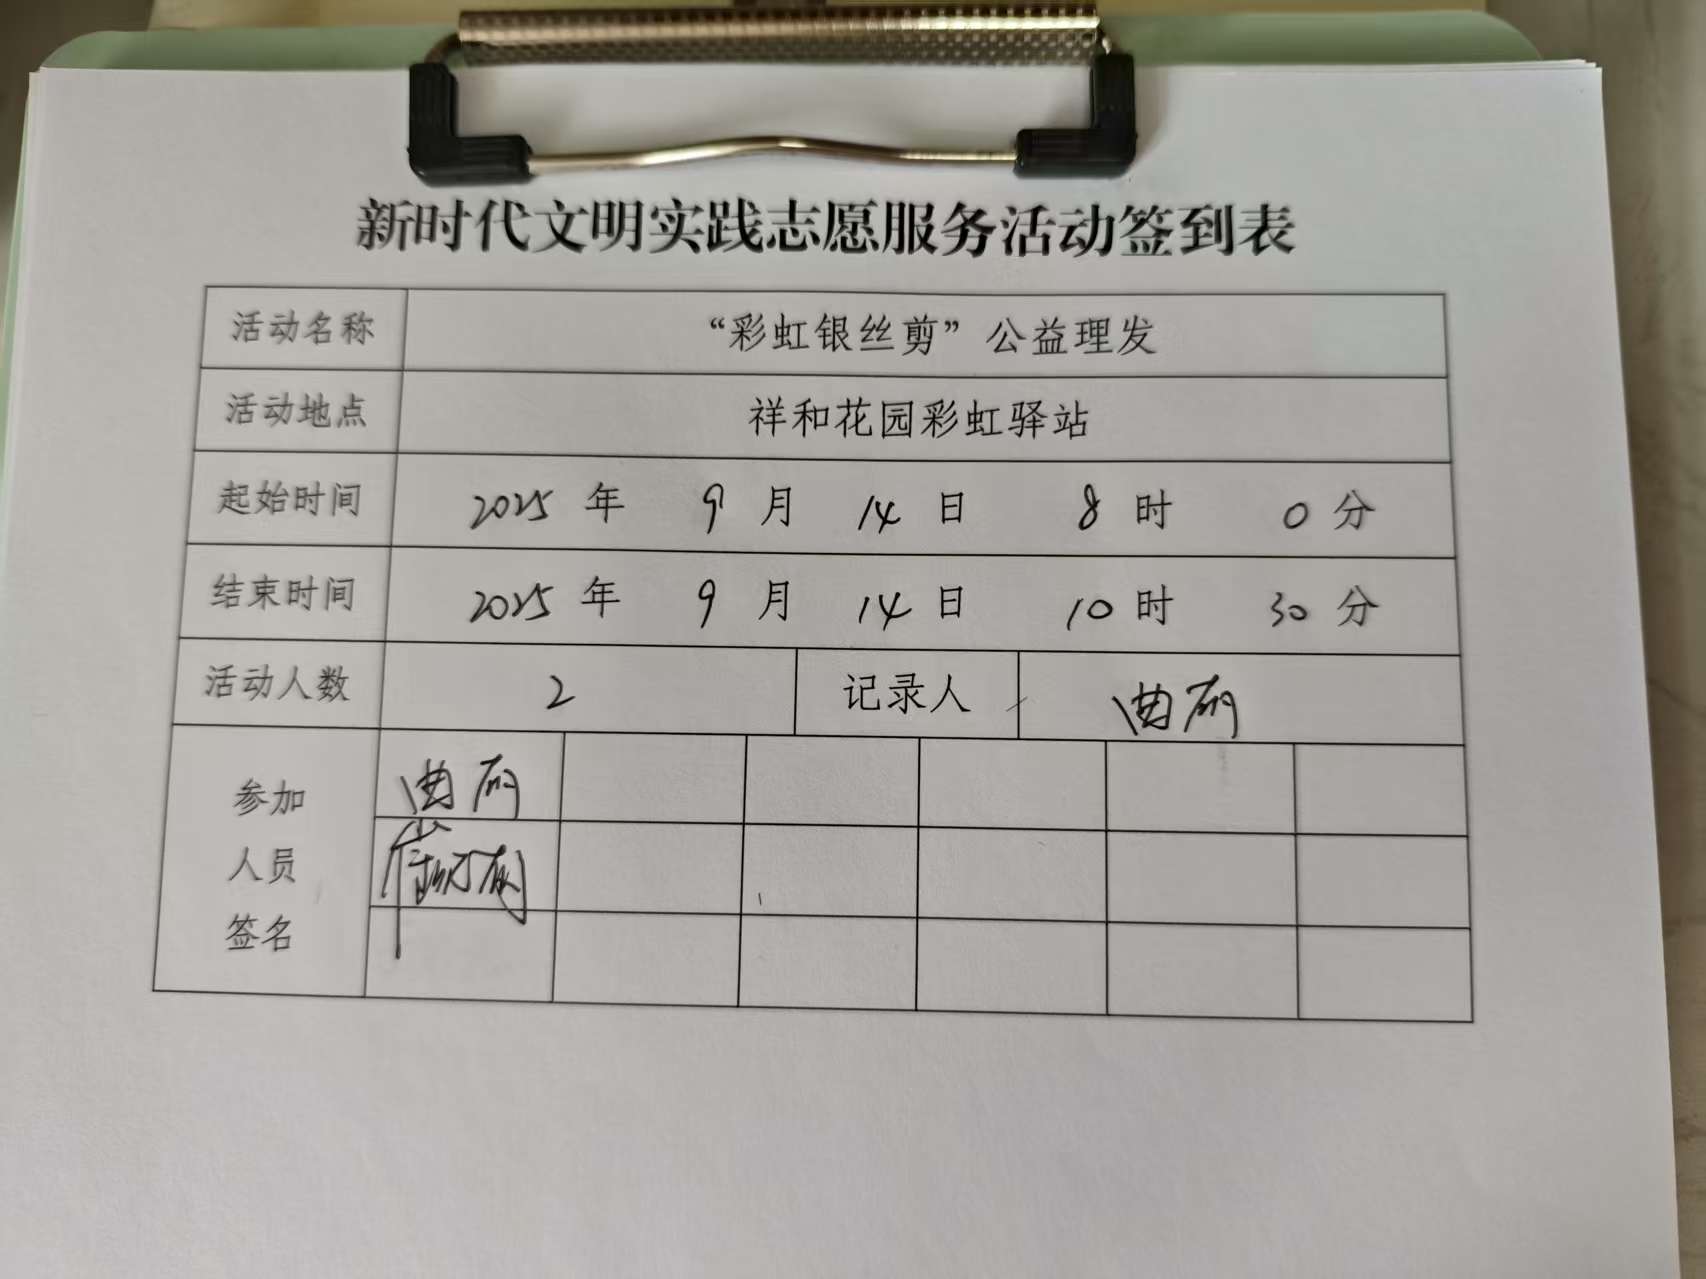 新时代文明实践志愿服务活动签到表
活动名称 “彩虹银丝剪”公益理发
活动地点 祥和花园彩虹驿站
起始时间 2025 年 9 月 14 日 8 时 0 分
结束时间 2025 年 9 月 14 日 10 时 30 分
活动人数 2 记录人 曲丽
参加 曲丽
人员
签名